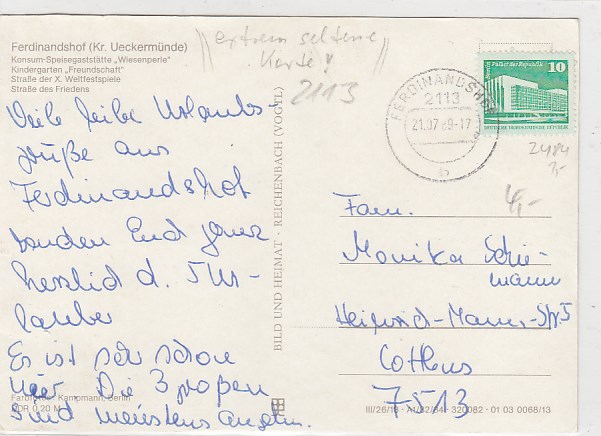 Ferdinandshof (Kr. Ueckermünde)
Konsum-Speisegaststätte „Wiesenperle"
Kindergarten „Freundschaft"
Straße der X. Weltfestspiele
Straße des Friedens
extrem seltene
Karte!
2113
FERDINANDSHOF
2113
21.07.89-17
b
Berlin, Palast der Republik
10
DEUTSCHE DEMOKRATISCHE REPUBLIK
2484
4,-
Viele liebe Urlaubs-
grüße aus
Ferdinandshof
senden Euch ganz
herzlich d. 5 Ur-
lauber
Es ist sehr schön
hier. Die 3 großen
sind meistens angeln.
BILD UND HEIMAT · REICHENBACH (VOGTL)
Fam.
Monika Schie-
mann
Heinrich-Mann-Str. 5
Cottbus
7513
Farbfotos: Kampmann, Berlin
DDR 0,20 M
III/26/13 · A1/82/84 · 320082 · 01 03 0068/13